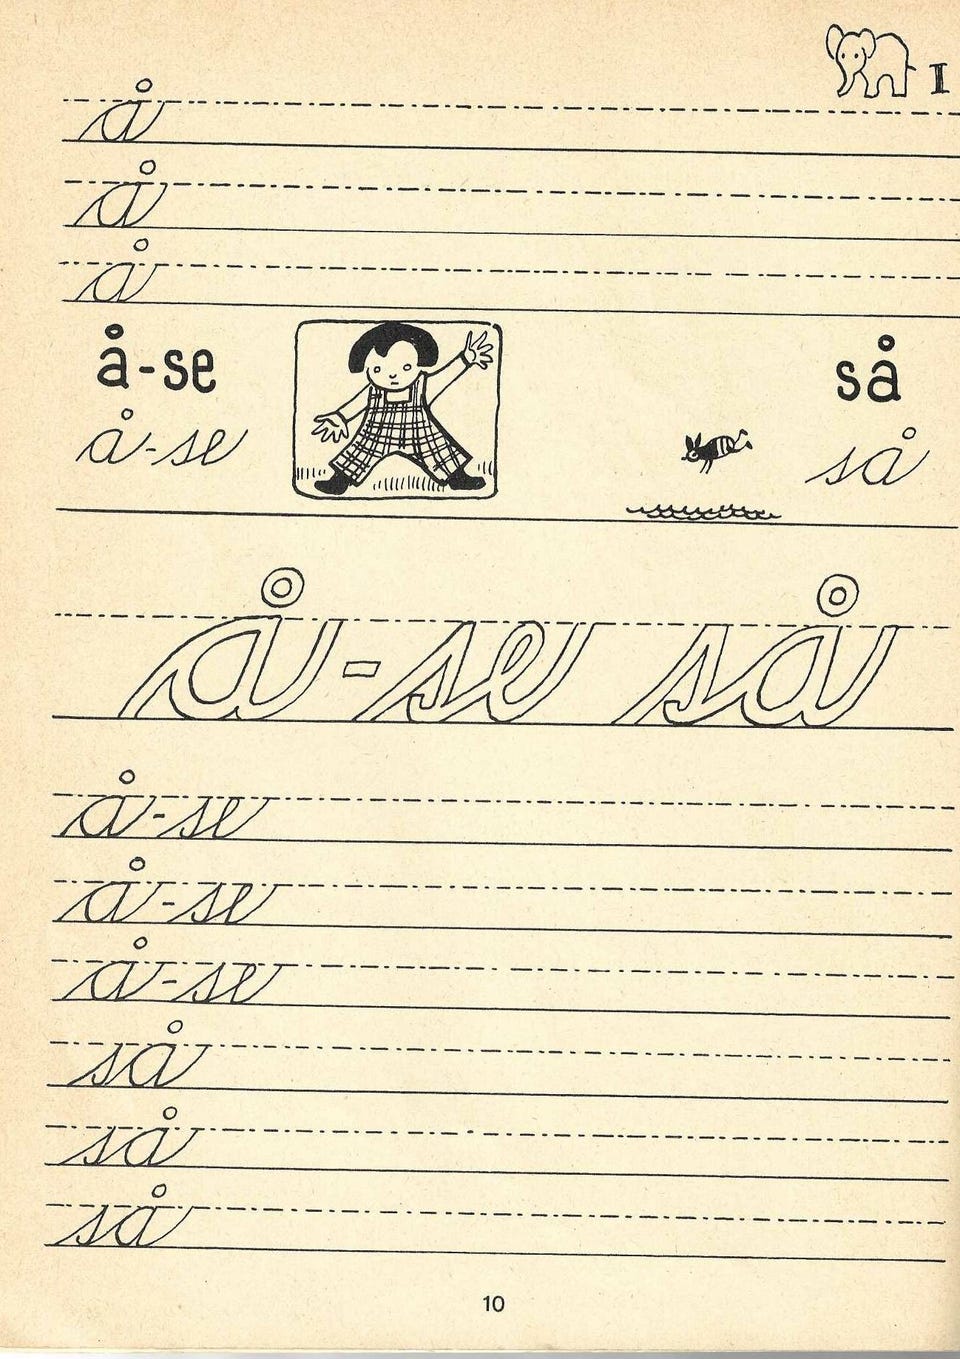 I
å
å
å
å-se
så
å-se
så
å-se så
å-se
å-se
å-se
så
så
så
10